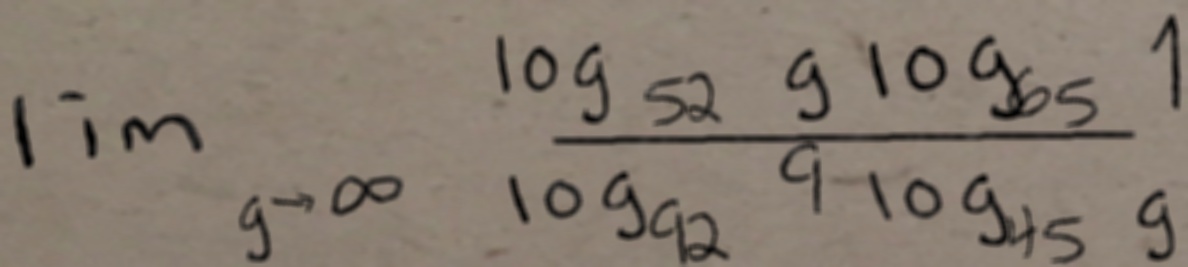 \lim_{g \to \infty} \frac{\log_{52} g \log_{65} 1}{\log_{92} 9 \log_{45} g}